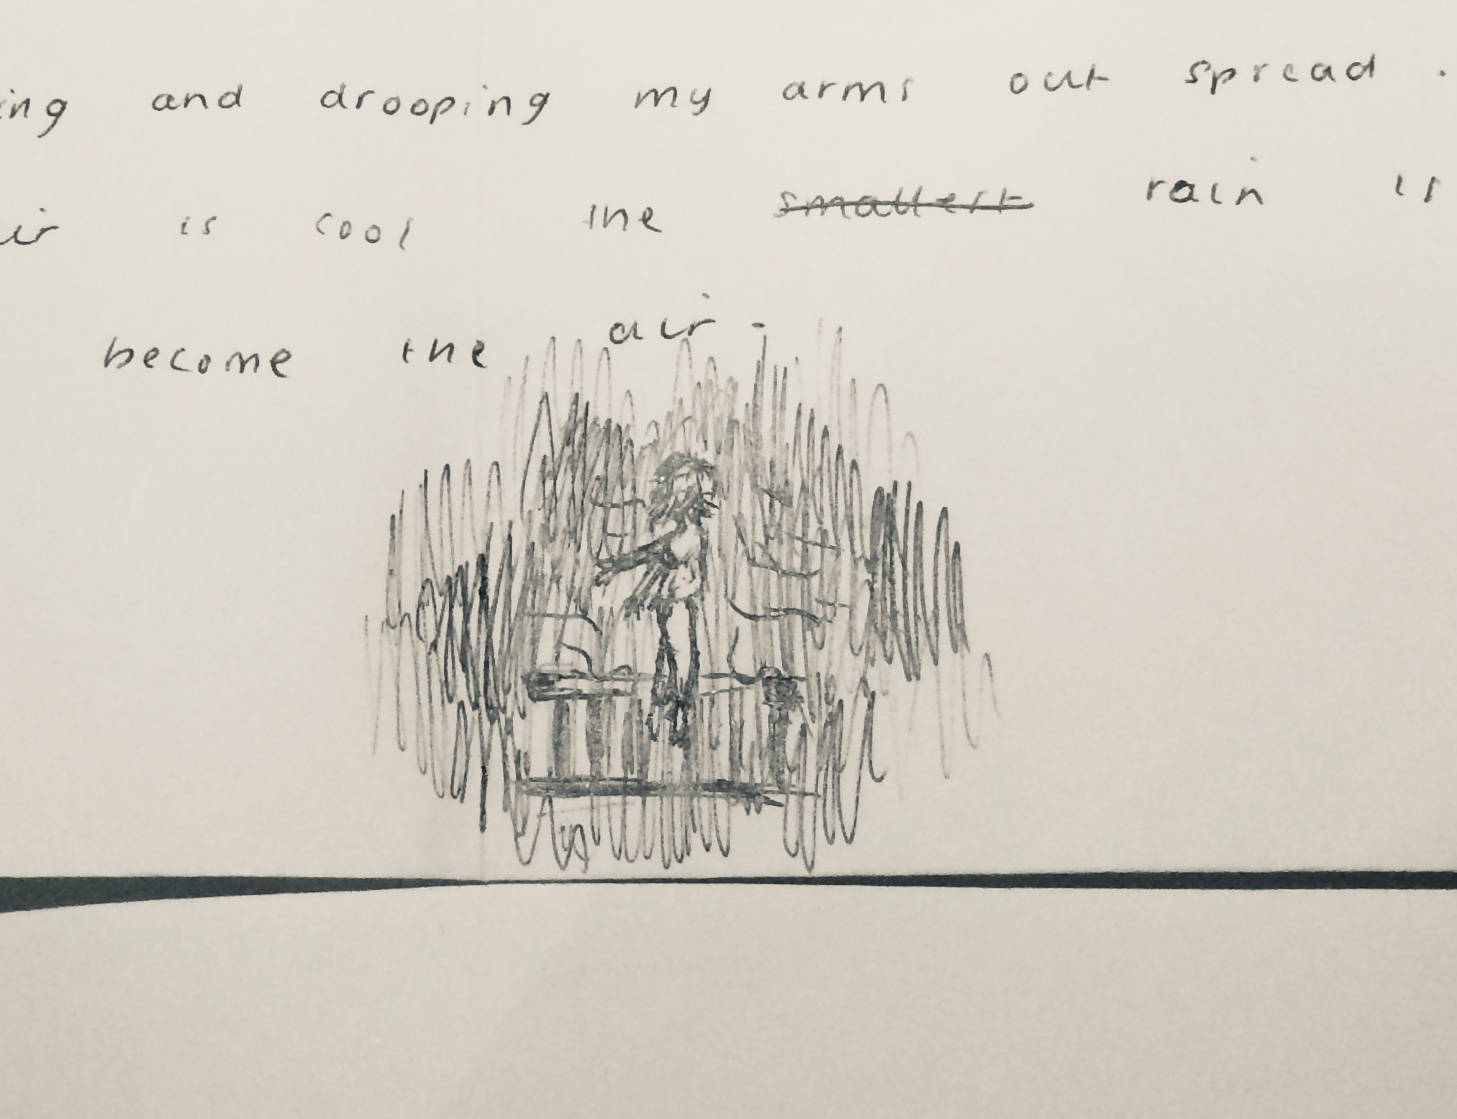 ing and drooping my arms out spread.
ir is cool the smallest rain is
become the air.